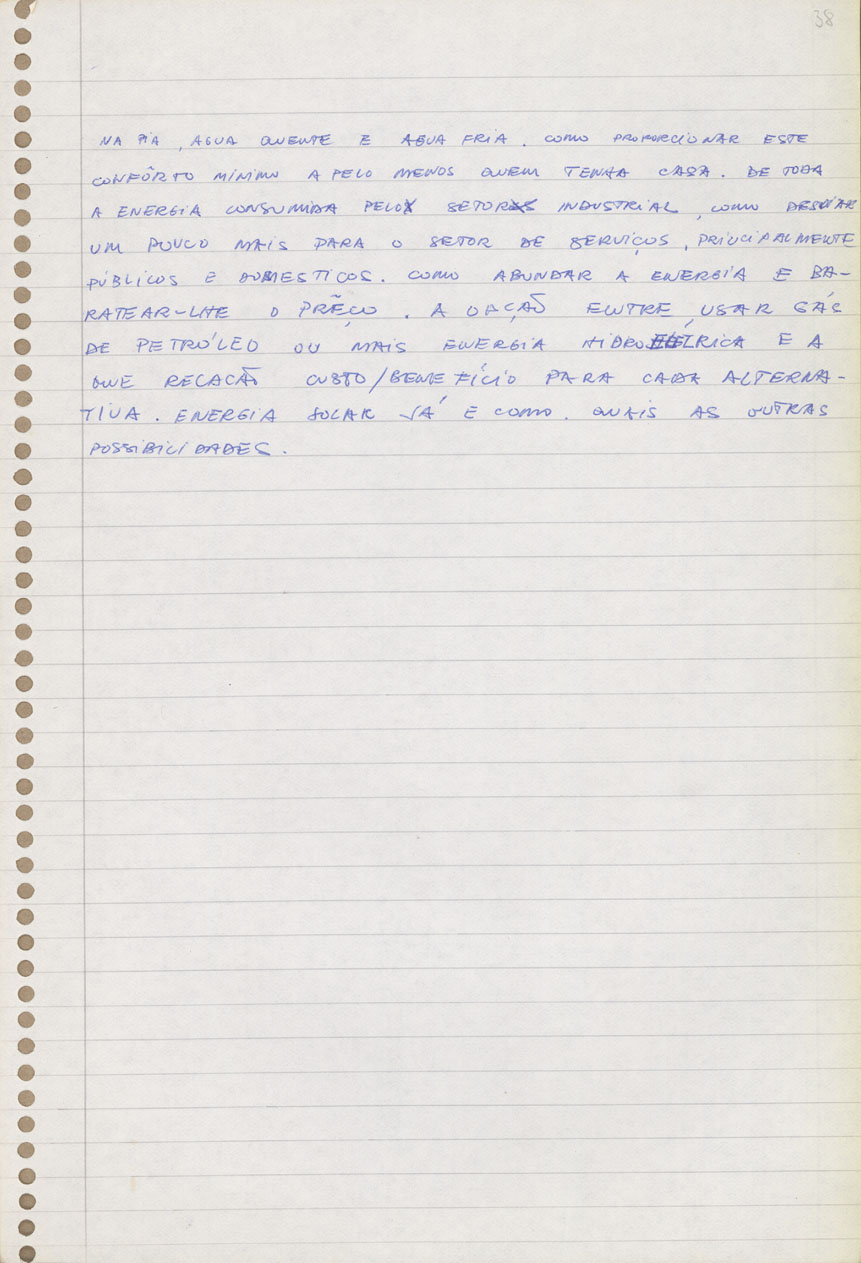 38
NA PIA, AGUA QUENTE E AGUA FRIA. COMO PROPORCIONAR ESTE
CONFÔRTO MÍNIMO A PELO MENOS QUEM TENHA CASA. DE TODA
A ENERGIA CONSUMIDA PELO SETOR INDUSTRIAL, COMO DESVIAR
UM POUCO MAIS PARA O SETOR DE SERVIÇOS, PRINCIPALMENTE
PÚBLICOS E DOMESTICOS. COMO ABUNDAR A ENERGIA E BA-
RATEAR-LHE O PRÊÇO. A OPÇÃO ENTRE USAR GÁS
DE PETRÓLEO OU MAIS ENERGIA HIDROELÉTRICA E A
QUE RELACÃO CUSTO/BENEFÍCIO PARA CADA ALTERNA-
TIVA. ENERGIA SOLAR JÁ E COMO. QUAIS AS OUTRAS
POSSIBILIDADES.